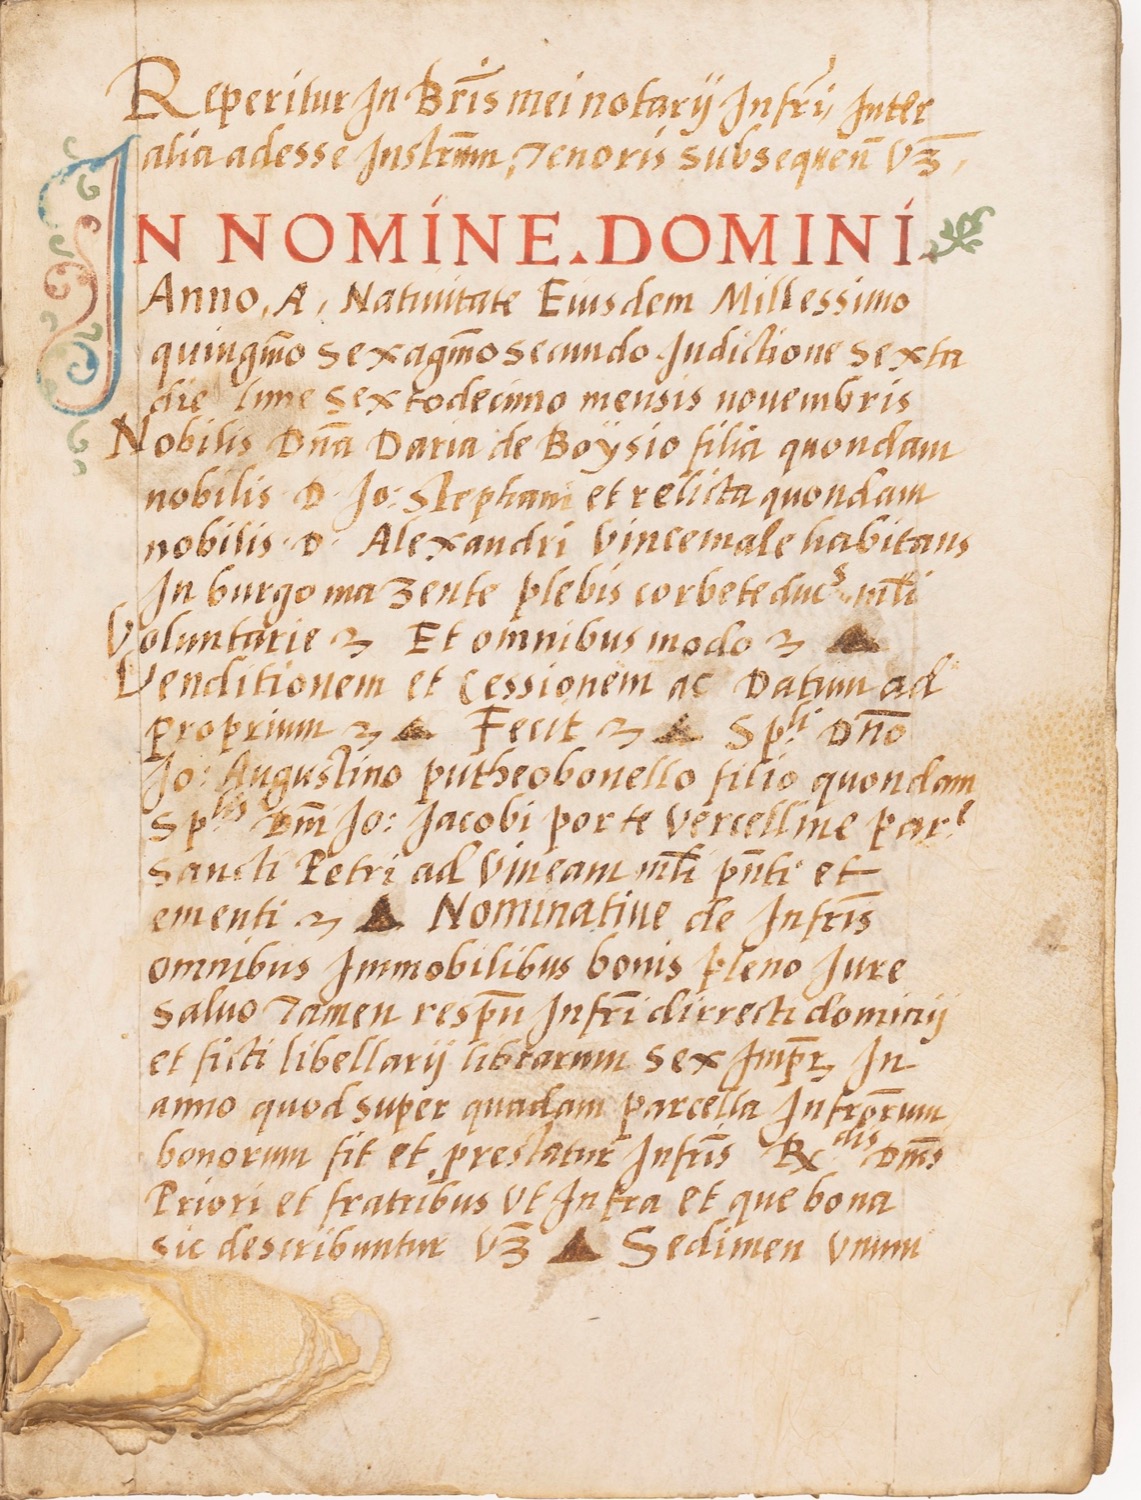 Reperitur In Br̄is mei notarij Infr̄i, Inter
alia adesse Instrum̄, Tenoris subsequen̄ Vꝫ,
IN NOMINE. DOMINI
Anno, A, Natiuitate Eiusdem Millessimo
quingm̄o sexagm̄o secundo Indictione sexta
die lune sextodecimo mensis nouembris
Nobilis Dn̄a Daria de Boÿsio filia quondam
nobilis D. Jo: Stephani et relicta quondam
nobilis D. Alexandri Vincemale habitans
In burgo mazente plebis corbete ducs. ml̄i
Voluntarie ꝛ Et omnibus modo ꝛ
Venditionem et Cessionem ac Datum ad
proprium ꝛ Fecit ꝛ Sp.li Dn̄o
Jo: Augustino putheobonello filio quondam
Sp.lis Dm̄ Jo: Jacobi porte Vercelline par.e
Sancti Petri ad Vineam ml̄i pn̄ti et
ementi ꝛ Nominatiue de Infr̄is
omnibus Immobilibus bonis pleno Iure
saluo Tamen respū Infr̄i dirrecti dominij
et ficti libellarij librarum sex Imp̄r, In
anno quod super quadam parcella Infrōrum
bonorum fit et prestatur Infr̄is Rx dis Dm̄s
Priori et fratribus Vt Infra et que bona
sic describuntur Vꝫ Sedimen Vnum